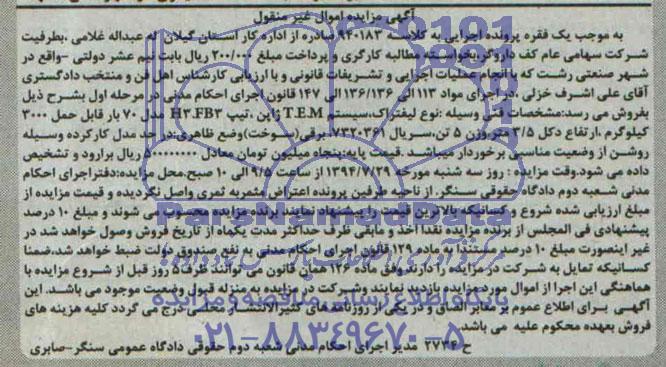 آگهی مزایده اموال غیر منقول
به موجب یک فقره پرونده اجرایی به کلاسه ۹۴۰۱۸۳ صادره از اداره کار استان گیلان له عبداله غلامی ،بطرفیت
شرکت سهامی عام کف داروگر،بخواسته مطالبه کارگری و پرداخت مبلغ ۲۰۰/۰۰۰ ریال بابت نیم عشر دولتی -واقع در
شهر صنعتی رشت که با انجام عملیات اجرایی و تشریفات قانونی و با ارزیابی کارشناس اهل فن و منتخب دادگستری
آقای علی اشرف خزلی ،در اجرای مواد ۱۱۳ الی ۱۳۶/۱۳۶ الی ۱۴۷ قانون اجرای احکام مدنی در مرحله اول بشرح ذیل
بفروش می رسد:مشخصات فنی وسیله :نوع لیفتراک،سیستم T.E.M ژاپن ،تیپ H۳.FB۳ مدل ۷۰ بار قابل حمل ۳۰۰۰
کیلوگرم ،ارتفاع دکل ۳/۵ متر،وزن ۵ تن،سریال ۷۳۲۰۳۶۱ برقی(سوخت)وضع ظاهری:در حد مدل کارکرده وسیله
روشن از وضعیت مناسبی برخوردار میباشد. قیمت پایه:پنجاه میلیون تومان معادل ۵۰۰۰۰۰۰۰۰ ریال براورد و تشخیص
داده می شود.وقت مزایده : روز سه شنبه مورخه ۱۳۹۴/۷/۲۹ از ساعت ۹/۵ الی ۱۰ صبح.محل مزایده:دفتراجرای احکام
مدنی شعبه دوم دادگاه حقوقی سنگر. از ناحیه طرفین پرونده اعتراض مثمربه ثمری واصل نگردیده و قیمت مزایده از
مبلغ ارزیابی شده شروع و کسانیکه بالاترین قیمت را پیشنهاد نمایند برنده مزایده محسوب می شوند و مبلغ ۱۰ درصد
پیشنهادی فی المجلس از برنده مزایده نقدا اخذ و مابقی ظرف حداکثر مدت یکماه از تاریخ فروش وصول خواهد شد در
غیر اینصورت مبلغ ۱۰ درصد ماده ۱۲۹ قانون اجرای احکام مدنی به نفع صندوق دولت ضبط خواهد شد،ضمنا
کسانیکه تمایل به شرکت در مزایده را دارند،وفق ماده ۱۲۶ همان قانون می توانند ظرف ۵ روز قبل از شروع مزایده با
هماهنگی این اجرا از اموال مورد مزایده بازدید نمایند وشرکت در مزایده به منزله قبول وضعیت موجود می باشد. این
آگهی برای اطلاع عموم بر معابر الصاق و در یکی از روزنامه های کثیرالانتشار محلی درج می گردد کلیه هزینه های
فروش بعهده محکوم علیه می باشد.
ح ۲۷۳۴ مدیر اجرای احکام مدنی شعبه دوم حقوقی دادگاه عمومی سنگر-صابری
ParsNamadData
پایگاه اطلاع رسانی مناقصه و مزایده
۰۲۱-۸۸۳۴۹۶۷۰-۵